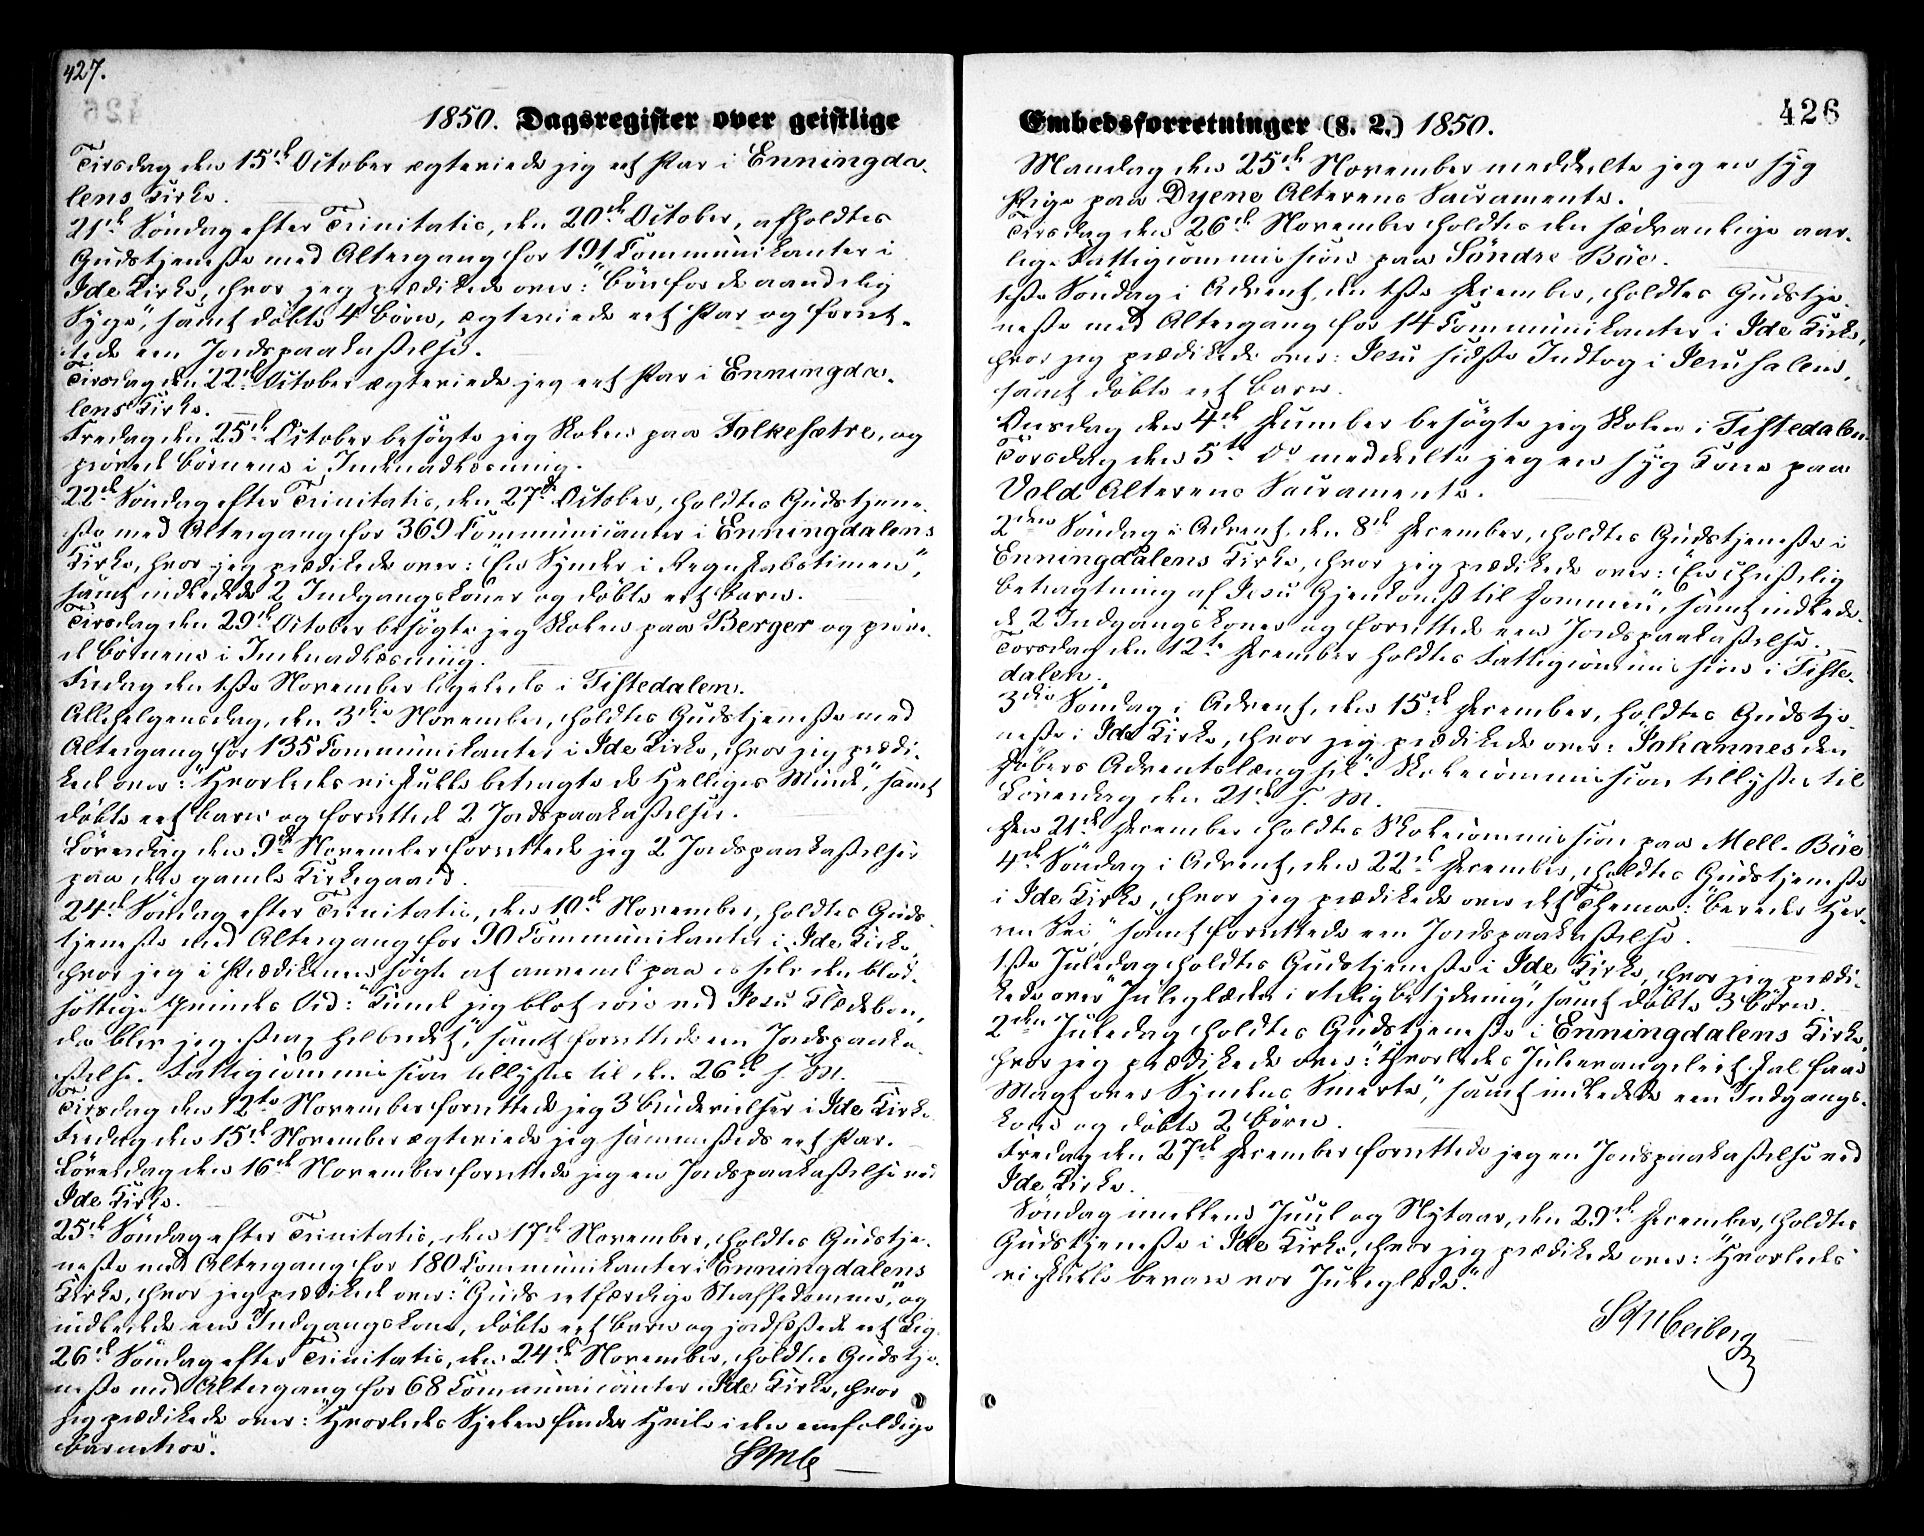 427.
1850. Dagsregister over geistlige
Tirsdag den 15de October ægteviede jeg eet Par i Enningda-
lens Kirke.
21de Söndag efter Trinitatis, den 20de October, afholdtes
Gudstjeneste med Altergang for 191 Communikanter i
Ide Kirke, hvor jeg prædikede over: "Bön for de aandelig
Syge", samt döbte 4 Börn, ægteviede eet Par og forret-
tede een Jordspaakastelse.
Tirsdag den 22de October ægteviede jeg eet Par i Enningda-
lens Kirke.
Fredag den 25de October besögte jeg Skolen paa Folkesætre, og
prövede Börnene i Indenadlæsning.
22de Söndag efter Trinitatis, den 27de October, holdtes Gudstjene-
ste med Altergang for 369 Communicanter i Enningdalens
Kirke, hvor jeg prædikede over: "En Synder i Regnskabstimen",
samt indledede 2 Indgangskoner og döbte eet Barn.
Tirsdag den 29de October besögte jeg Skolen paa Berger og pröve-
de Börnene i Indenadlæsning.
Fredag den 1ste November ligeledes i Tistedalen.
Allehelgensdag, den 3die November, holdtes Gudstjeneste med
Altergang for 135 Communikanter i Ide Kirke, hvor jeg prædi-
kede over: "Hvorledes vi skulle betragte de Helliges Minde", samt
döbte eet Barn og forrettede 2 Jordspaakastelser.
Löverdag den 9de November forrettede jeg 2 Jordspaakastelser
paa den gamle Kirkegaard.
24de Söndag efter Trinitatis, den 10de November, holdtes Guds-
tjeneste med Altergang for 90 Communikanter i Ide Kirke
hvor jeg i Prædikenen sögte at anvende paa os selv den blod-
sottige Qvindes Ord: "Kunde jeg blot röre ved Jesu Klædebon,
da blev jeg strax helbredet", samt forrettede een Jordspaaka-
stelse. Fattigcommission tillystes til den 26de h. M.
Tirsdag den 12te November forrettede jeg 3 Brudevielser i Ide Kirke.
Fredag den 15de November ægteviede jeg sammesteds eet Par.
Löverdag den 16de November forrettede jeg en Jordspaakastelse ved
Ide Kirke.
25de Söndag efter Trinitatis, den 17de November, holdtes Gudstje-
neste med Altergang for 180 Communikanter i Enningdalens
Kirke, hvor jeg prædikede over: "Guds retfærdige Straffedomme", og
indledede een Indgangskone, döbte eet Barn og jordfæstede eet Lig.
26de Söndag efter Trinitatis, den 24de November, holdtes Gudstje-
neste med Altergang for 68 Communicanter i Ide Kirke, hvor
jeg prædikede over: "Hvorledes Sjelen finder Hvile i den eenfoldige
Barnetroe".
Embedsforretninger (S. 2.) 1850.
426
Mandag den 25de November meddeelte jeg en syg
Pige paa Dyene Alterens Sacramente.
Tirsdag den 26de November holdtes den sædvanlige aar-
lige Fattigcommission paa Söndre Böe.
1ste Söndag i Advent, den 1ste December, holdtes Gudstje-
neste med Altergang for 14 Communikanter i Ide Kirke,
hvor jeg prædikede over: Jesu sidste Indtog i Jerusalem,
samt döbte eet Barn.
Onsdag den 4de December besögte jeg Skolen i Tistedalen.
Torsdag den 5te Do meddeelte jeg en syg Kone paa
Vold Alterens Sacramente.
2den Söndag i Advent, den 8de December, holdtes Gudstjeneste i
Enningdalens Kirke, hvor jeg prædikede over: "En christelig
Betragtning af Jesu Gjenkomst til Dommen", samt indlede-
de 2 Indgangskoner og forrettede een Jordspaakastelse.
Torsdag den 12te December holdtes Fattigcommission i Tiste-
dalen.
3die Söndag i Advent, den 15de December, holdtes Gudstje-
neste i Ide Kirke, hvor jeg prædikede over: "Johannes den
Döbers Adventslængsel". Skolecommission tillystes til
Löverdag den 21de h. M.
Den 21de December holdtes Skolecommission paa Mell. Böe
4de Söndag i Advent, den 22de December, holdtes Gudstjeneste
i Ide Kirke, hvor jeg prædikede over det Thema: "Bereder Her-
ren Vei", samt forrettede een Jordspaakastelse.
1ste Juledag holdtes Gudstjeneste i Ide Kirke, hvor jeg prædi-
kede over "Juleglæden i rettelig Betydning", samt döbte 3 Börn.
2den Juledag holdtes Gudstjeneste i Enningdalens Kirke,
hvor jeg prædikede over: "Hvorledes Juleevangeliet skal faae
Magt over Syndens Smerte", samt indledede een Indgangs-
kone og döbte 2 Börn.
Fredag den 27de December forrettede jeg en Jordspaakastelse ved
Ide Kirke.
Söndag imellem Juul og Nytaar, den 29de December, holdtes
Gudstjeneste i Ide Kirke, hvor jeg prædikede over: "Hvorledes
vi skulle bevare vor Juleglæde."